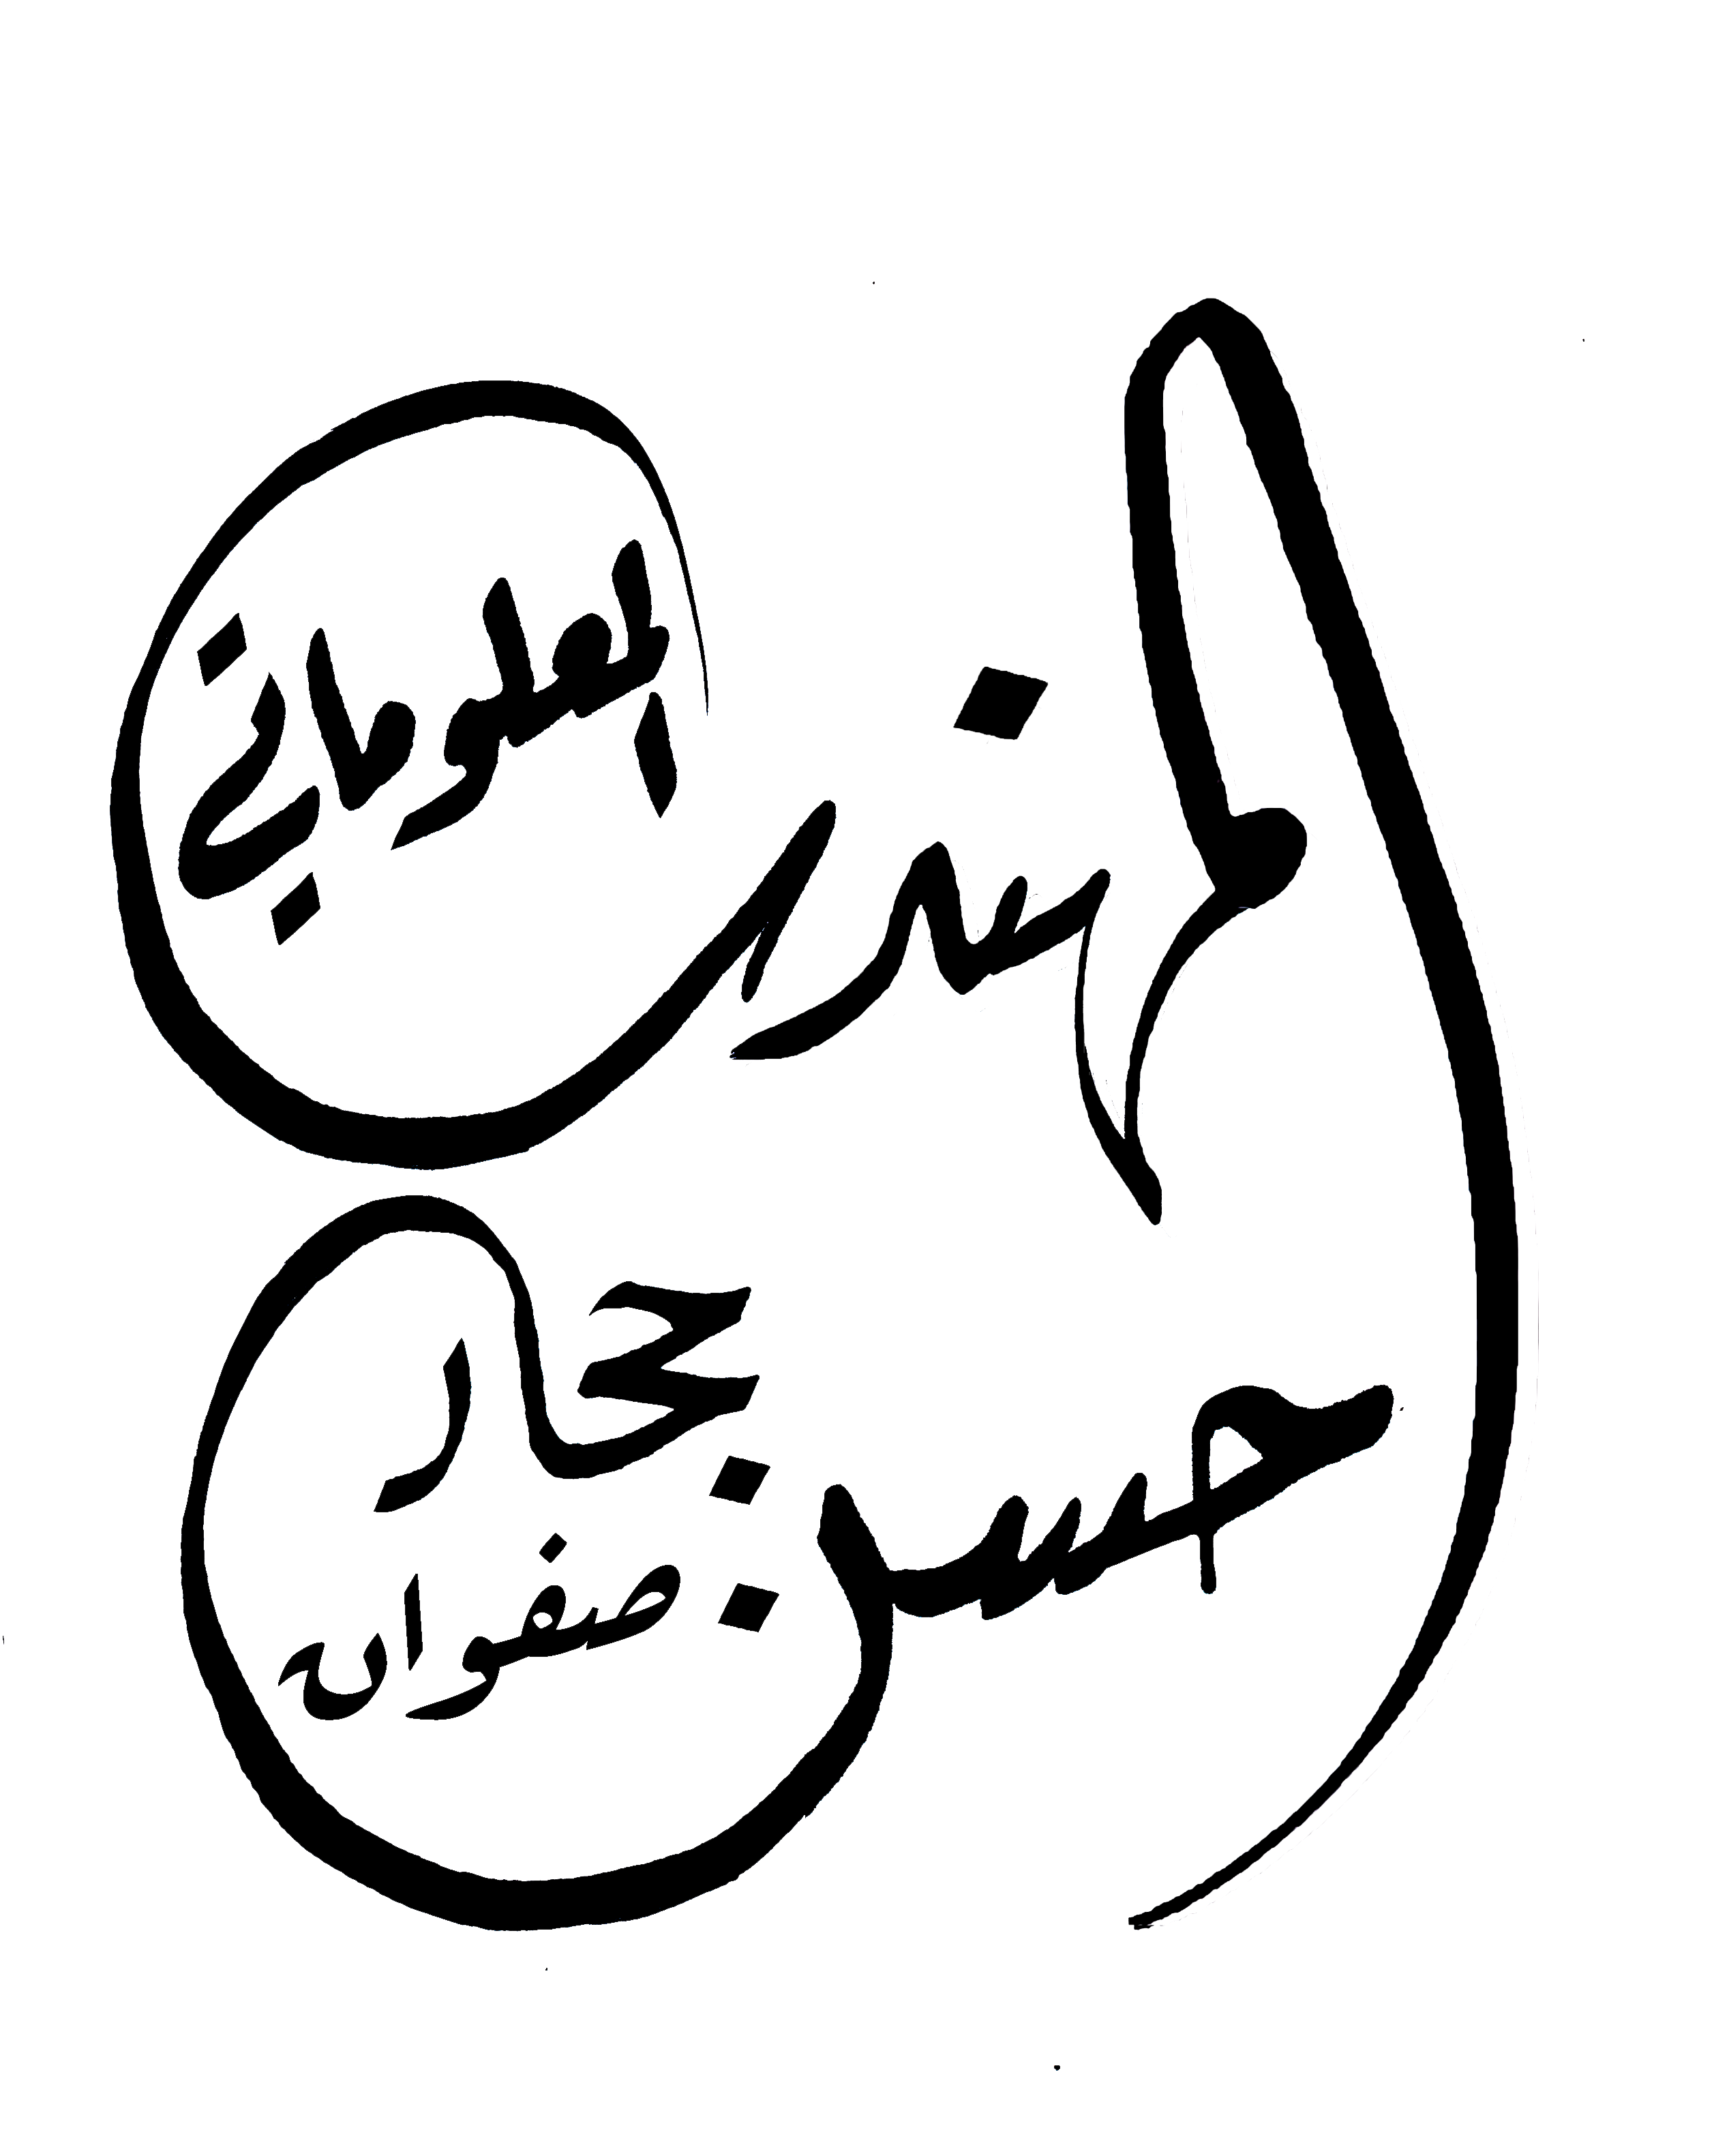 المهندس المعلوماتي
حسين حجار
صفوان